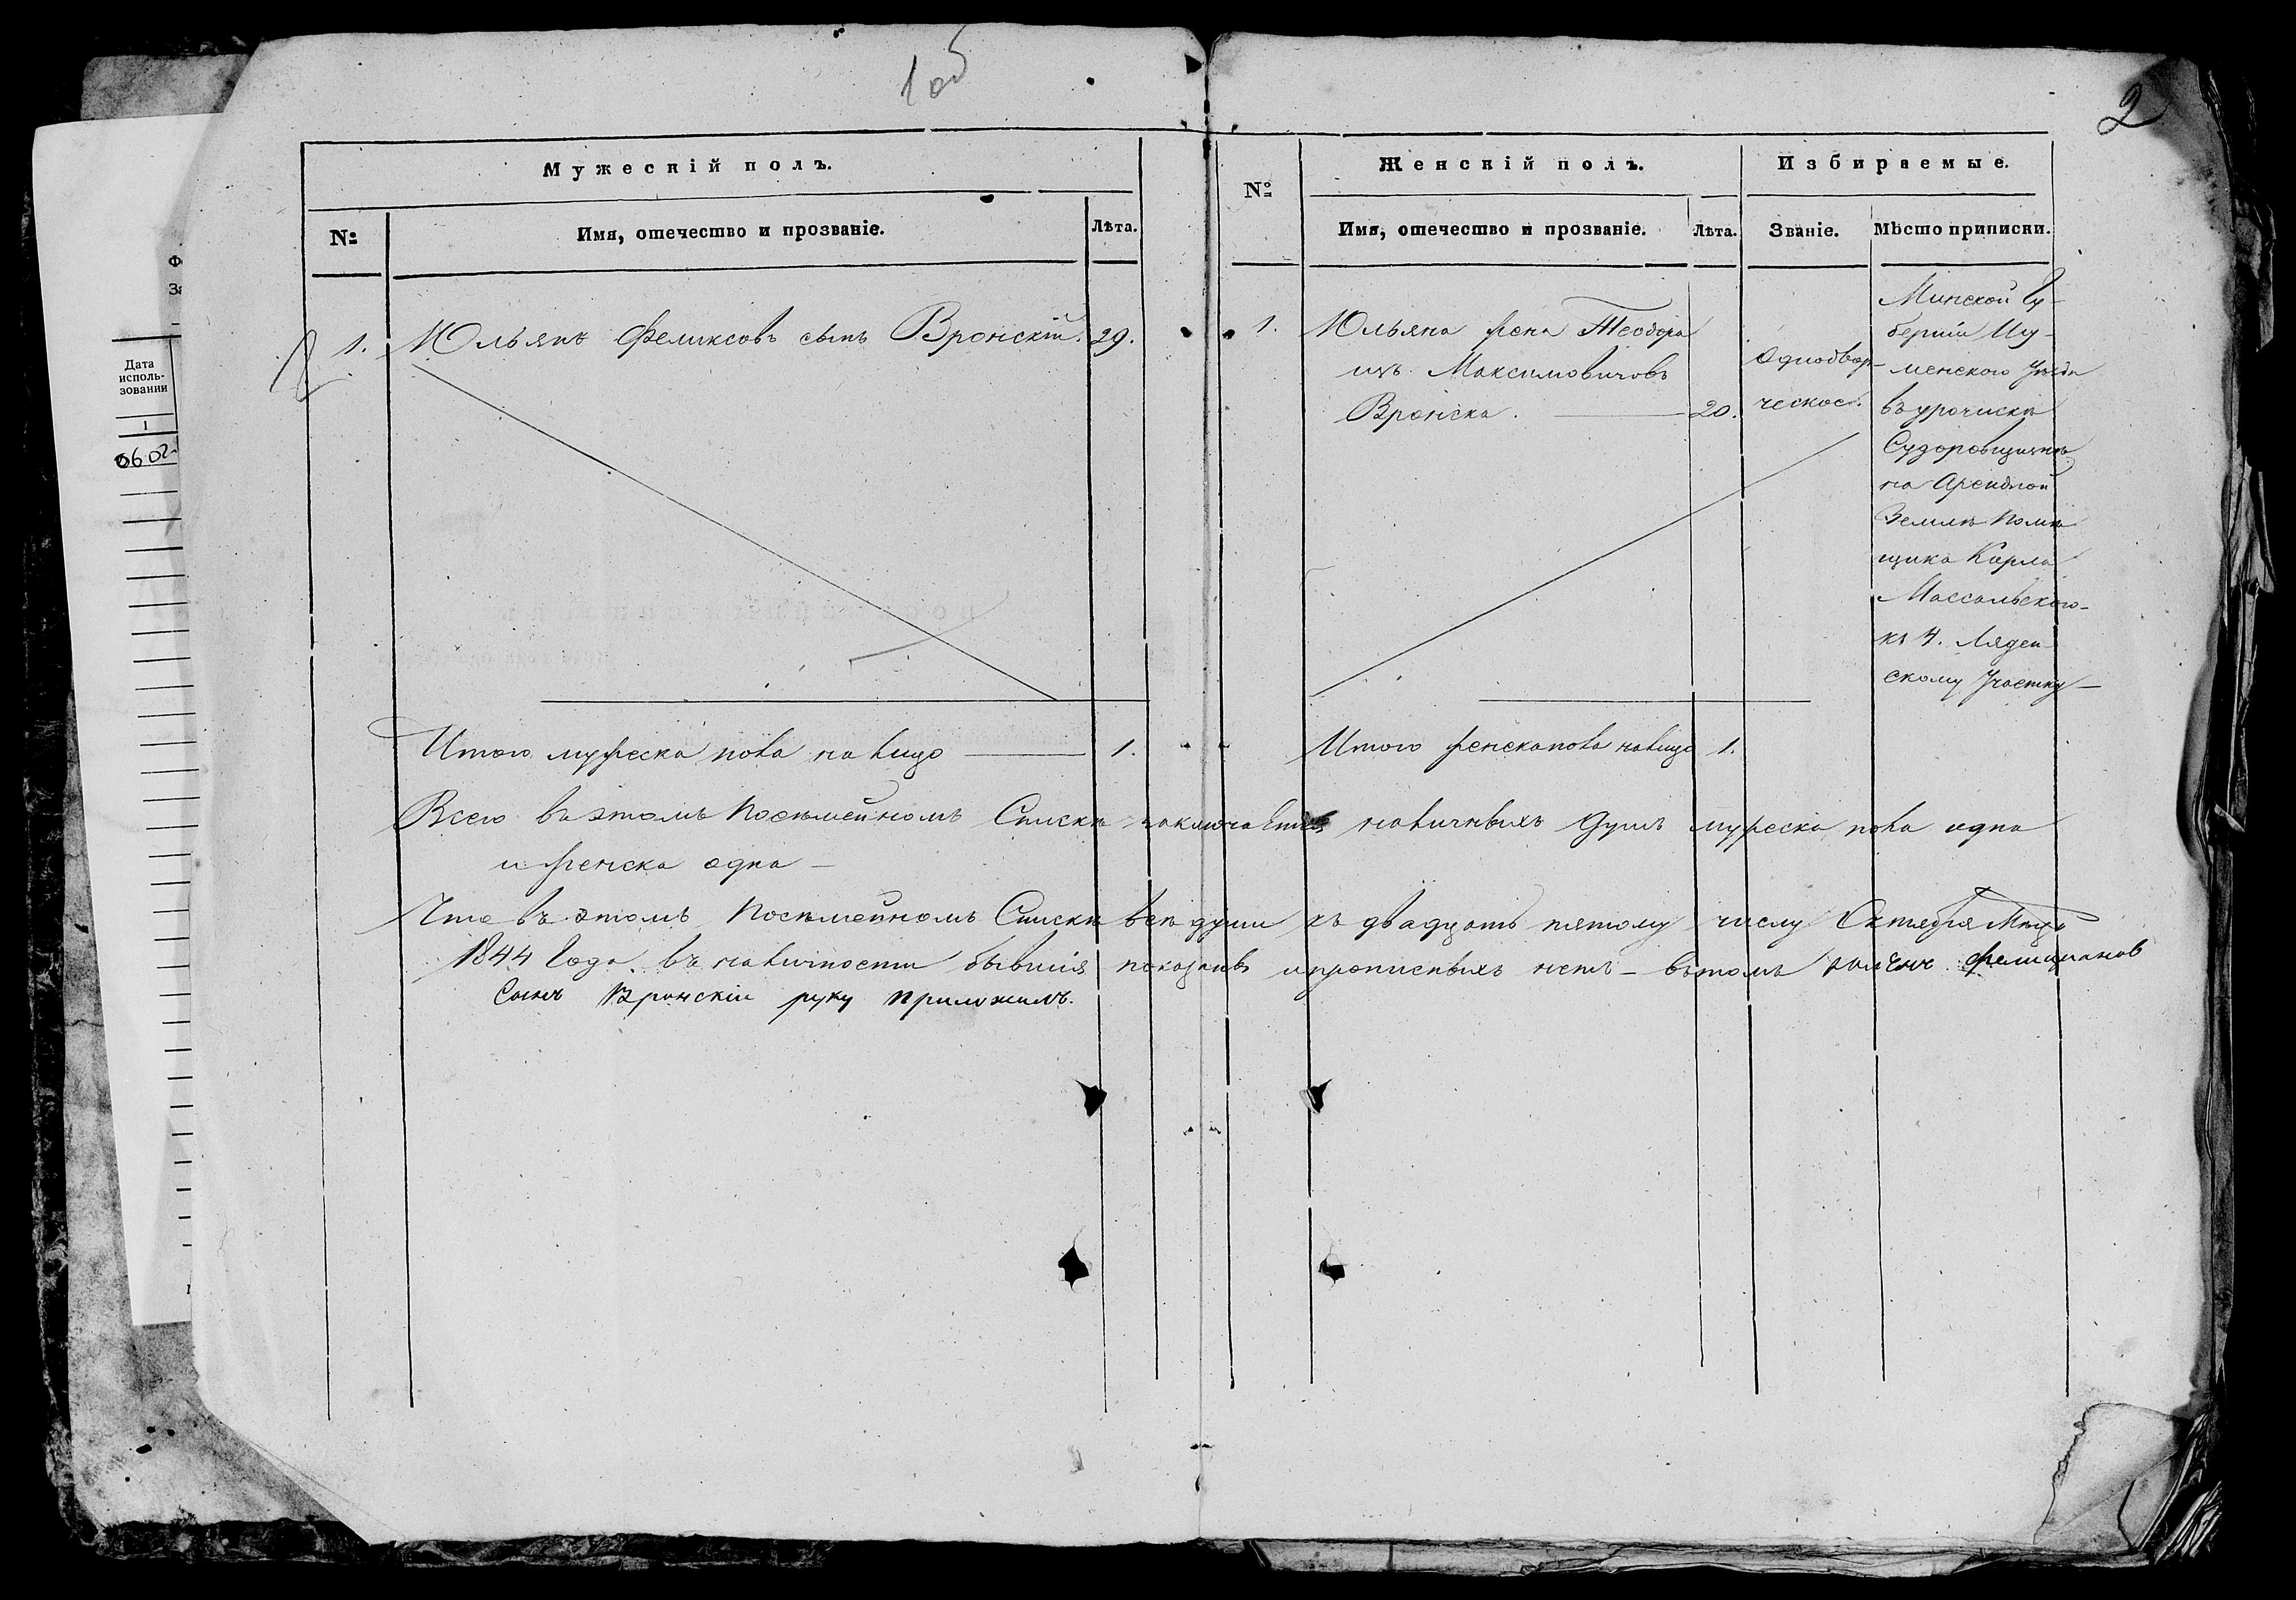 1об
2
Мужескій полъ.
№
Имя, отечество и прозваніе.
Лѣта.
1. Юльянъ Феликсовъ сынъ Вронскій. 29.
Итого мужеска пола на лицо 1.
№
Женскій полъ.
Избираемые.
Имя, отечество и прозваніе.
Лѣта.
Званіе.
Мѣсто приписки.
1. Юльяна жена Теодора
изъ Максимовичовъ
Вронска. 20.
Однодвор-
ческое.
Минской Гу-
берніи Игу-
менского Уѣзда
въ урочискѣ
Судоровщизнѣ
на Арендной
Землѣ Помѣ
щика Карла
Массальского-
къ 4. Ляден-
скому Участку
Итого женска пола на лицо 1.
Всего въ этомъ Посѣмейномъ Спискѣ заключается наличныхъ душъ мужеска пола одна
и женска одна
Что въ этомъ Посѣмейномъ Спискѣ всѣ души къ двадцать пятому числу Октября Мца
1844 Года. въ наличности бывшія показанъ и прописныхъ нетъ - въ томъ Фелиціановъ
Сынъ Вронскій руку приложилъ.
Дата
исполь-
зовании
1